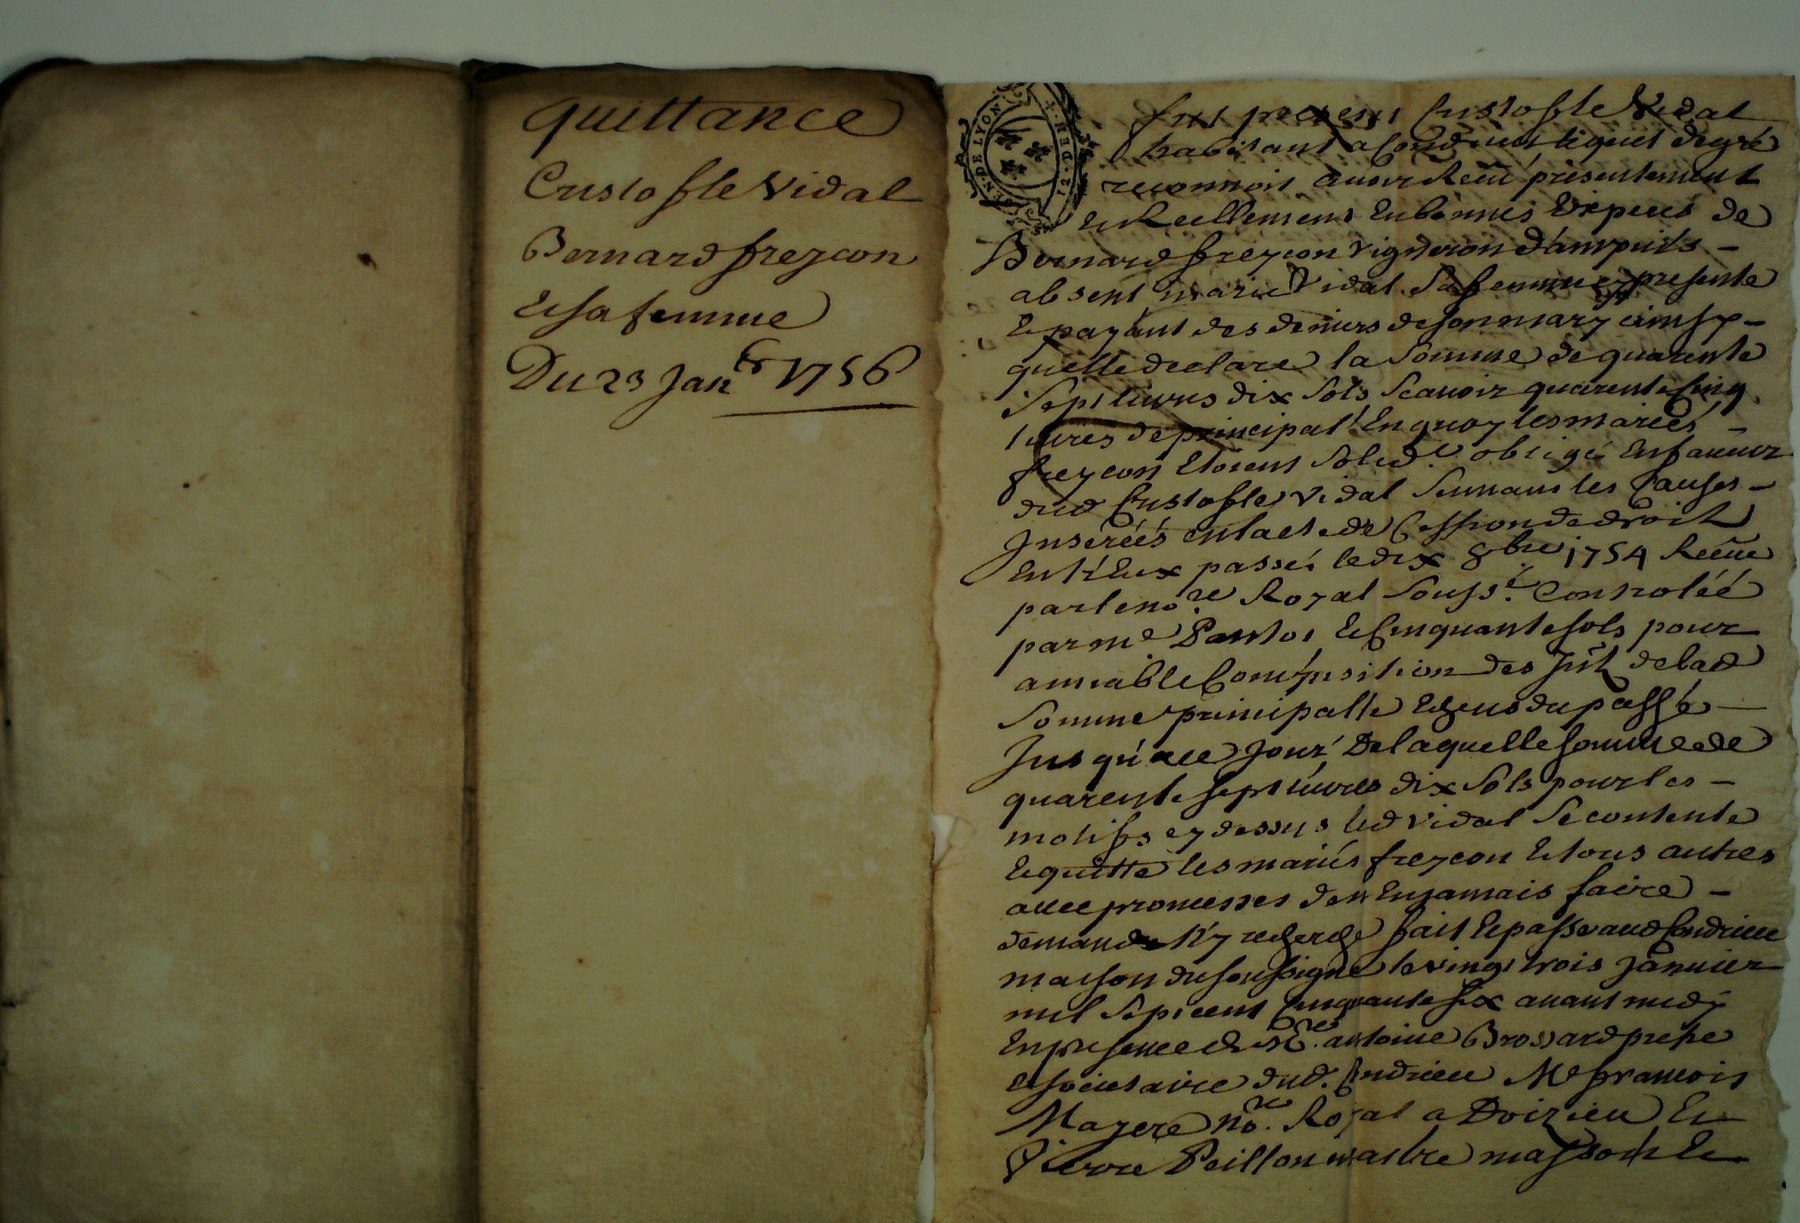 quittance
Cristofle Vidal
Bernard freycon
et sa femme
Du 23 Janer 1756
GEN. DE LYON
fut present Cristofle Vidal
habitant a Condrieu lequel de gré
reconnoit avoir Receü présentement
et Reellement en bonnes Especes de
Bernard freycon vigneron d'ampuis
absent marie Vidal sa femme presente
et payant des deniers de son mary ainsy
quelle declare la somme de quarente
sept livres dix sols scavoir quarente Cinq
livres de principal En quoy les mariés
freycon Etoient solide. obligé En faveur
dud Cristofle Vidal suivant les Causes
Inserées en lacte de Cession de droit
Entr'Eux passé le dix 8bre 1754 Receüe
par le nore Royal souss.é Controlée
par me Et Cinquante sols pour
amiable Composition des Int. de lad
somme principalle Echeus du passé
Jusqu'a ce jour De laquelle somme de
quarente sept livres dix sols pour les
motifs cy dessus led Vidal se contente
Et quitte les mariés freycon Et tous autres
avec promesses de n'En jamais faire
demande n'y recherche fait Et passé aud Condrieu
maison du soussigné le vingt trois Janvier
mil sept cent Cinquante six avant midy
En presence de Mre. antoine Brossard pretre
et societaire dud. Condrieu Me francois
Mayere nore. Royal a Doizieu Et
Pierre Peillon maitre masson Et